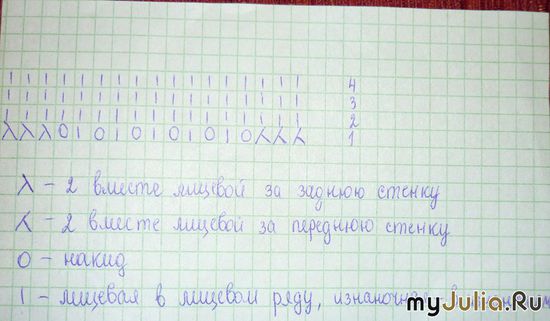 | | | | | | | | | | | | | | | | | 4
| | | | | | | | | | | | | | | | | 3
| | | | | | | | | | | | | | | | | 2
λ λ λ O | O | O | O | O | O ⅄ ⅄ ⅄ 1
λ - 2 вместе лицевой за заднюю стенку
⅄ - 2 вместе лицевой за переднюю стенку
O - накид
| - лицевая в лицевом ряду, изнаночная
myJulia.Ru